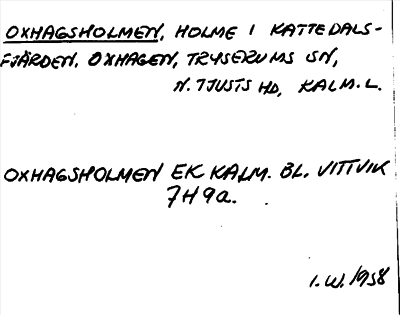 OXHAGSHOLMEN, HOLME I KATTEDALS-
FJÄRDEN, OXHAGEN, TRYSERUMS SN,
N. TJUSTS HD, KALM. L.
OXHAGSHOLMEN EK KALM. BL. VITTVIK
7H9a.
I.W. 1958